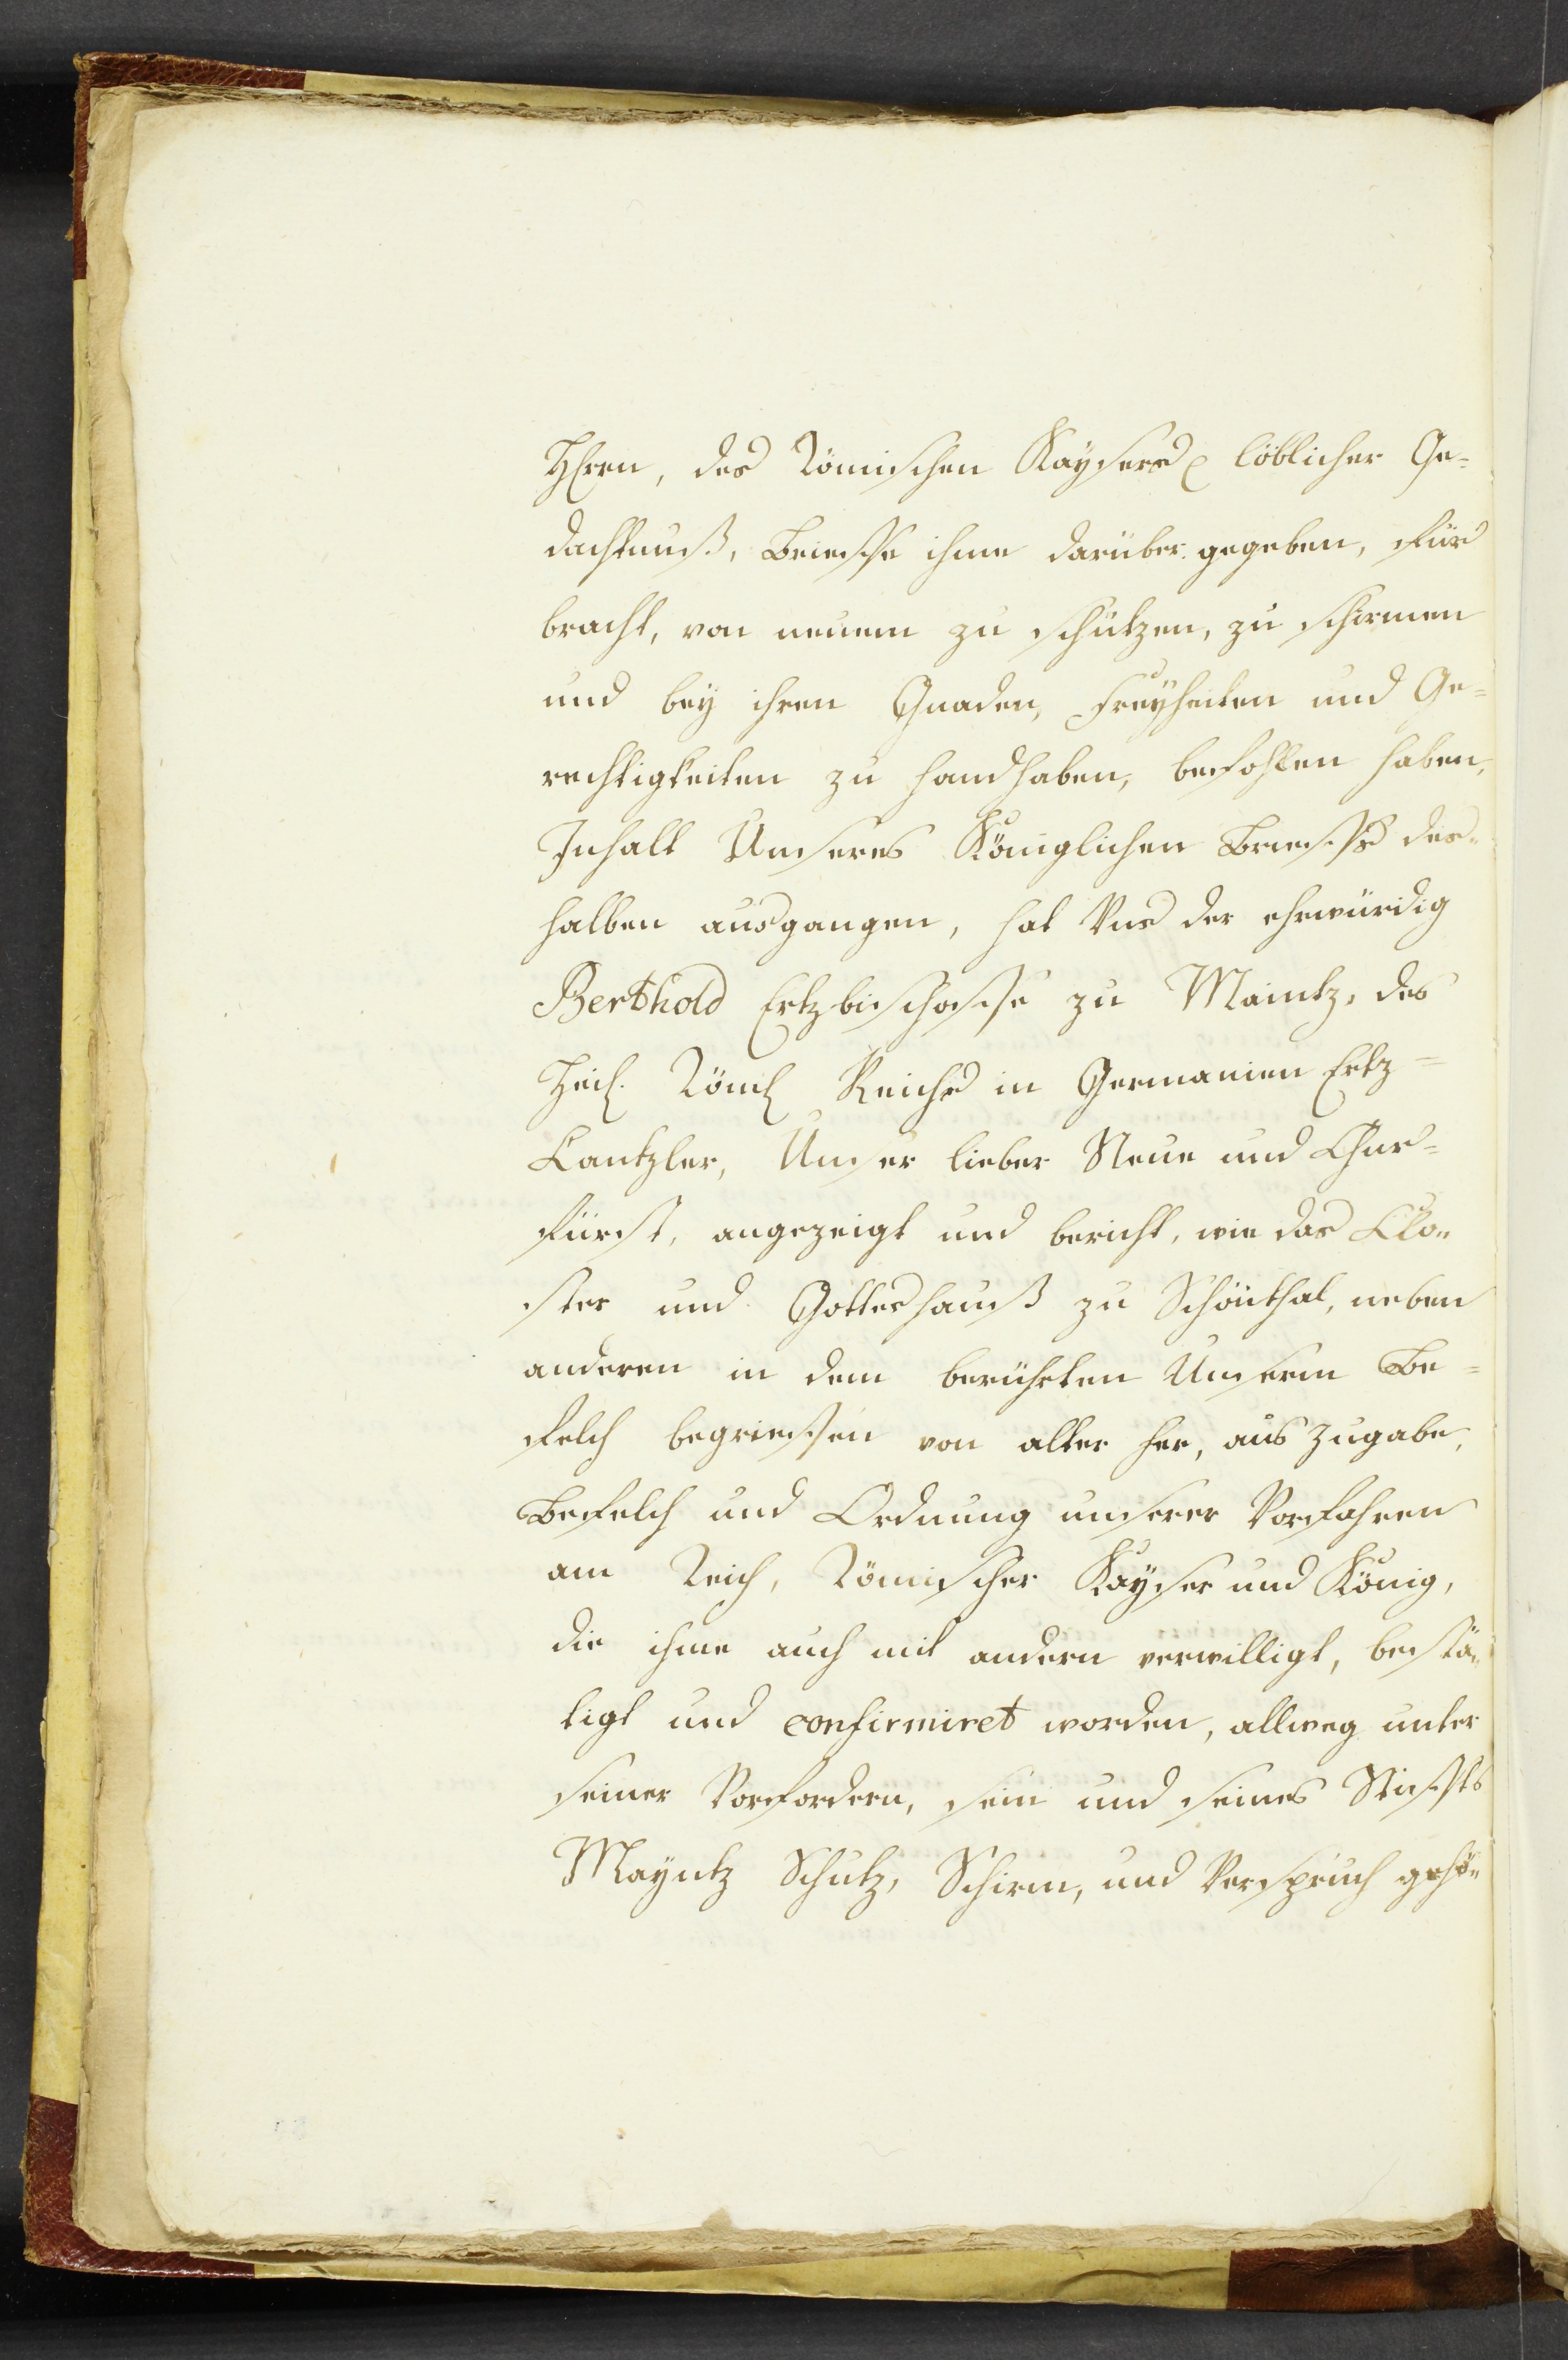 Hhren, des Römischen Kaysers p löblicher Ge=
dachtnuß, Brieffe ihme darüber gegeben, für
bracht, von neuem zu schützen, zu schirmen
und bey ihren Gnaden, Freyheiten und Ge=
rechtigkeiten zu handhaben, befohlen haben,
Inhalt Unseres Königlichen Brieffs des=
halben ausgangen, hat Uns der ehrwürdig
Berthold Ertzbischoffe zu Maintz, des
Heil. Röml Reichs in Germanien Ertz=
Cantzler, Unser lieber Neve und Chur=
fürst, angezeigt und bericht, wie das Clo=
ster und Gotteshauß zu Schönthal, neben
anderen in dem berührten Unserm Be=
felch begrieffen von alter her, aus Zugabe,
Befelch und Ordnung unserer Vorfahren
am Reich, Römischer Kayser und König,
die ihme auch mit andern verwilligt, bestä=
tigt und confirmiret worden, allweg unter
seiner Vorfordern, sein und seines Stiffts
Mayntz Schutz, Schirm, und Verspruch gehö=